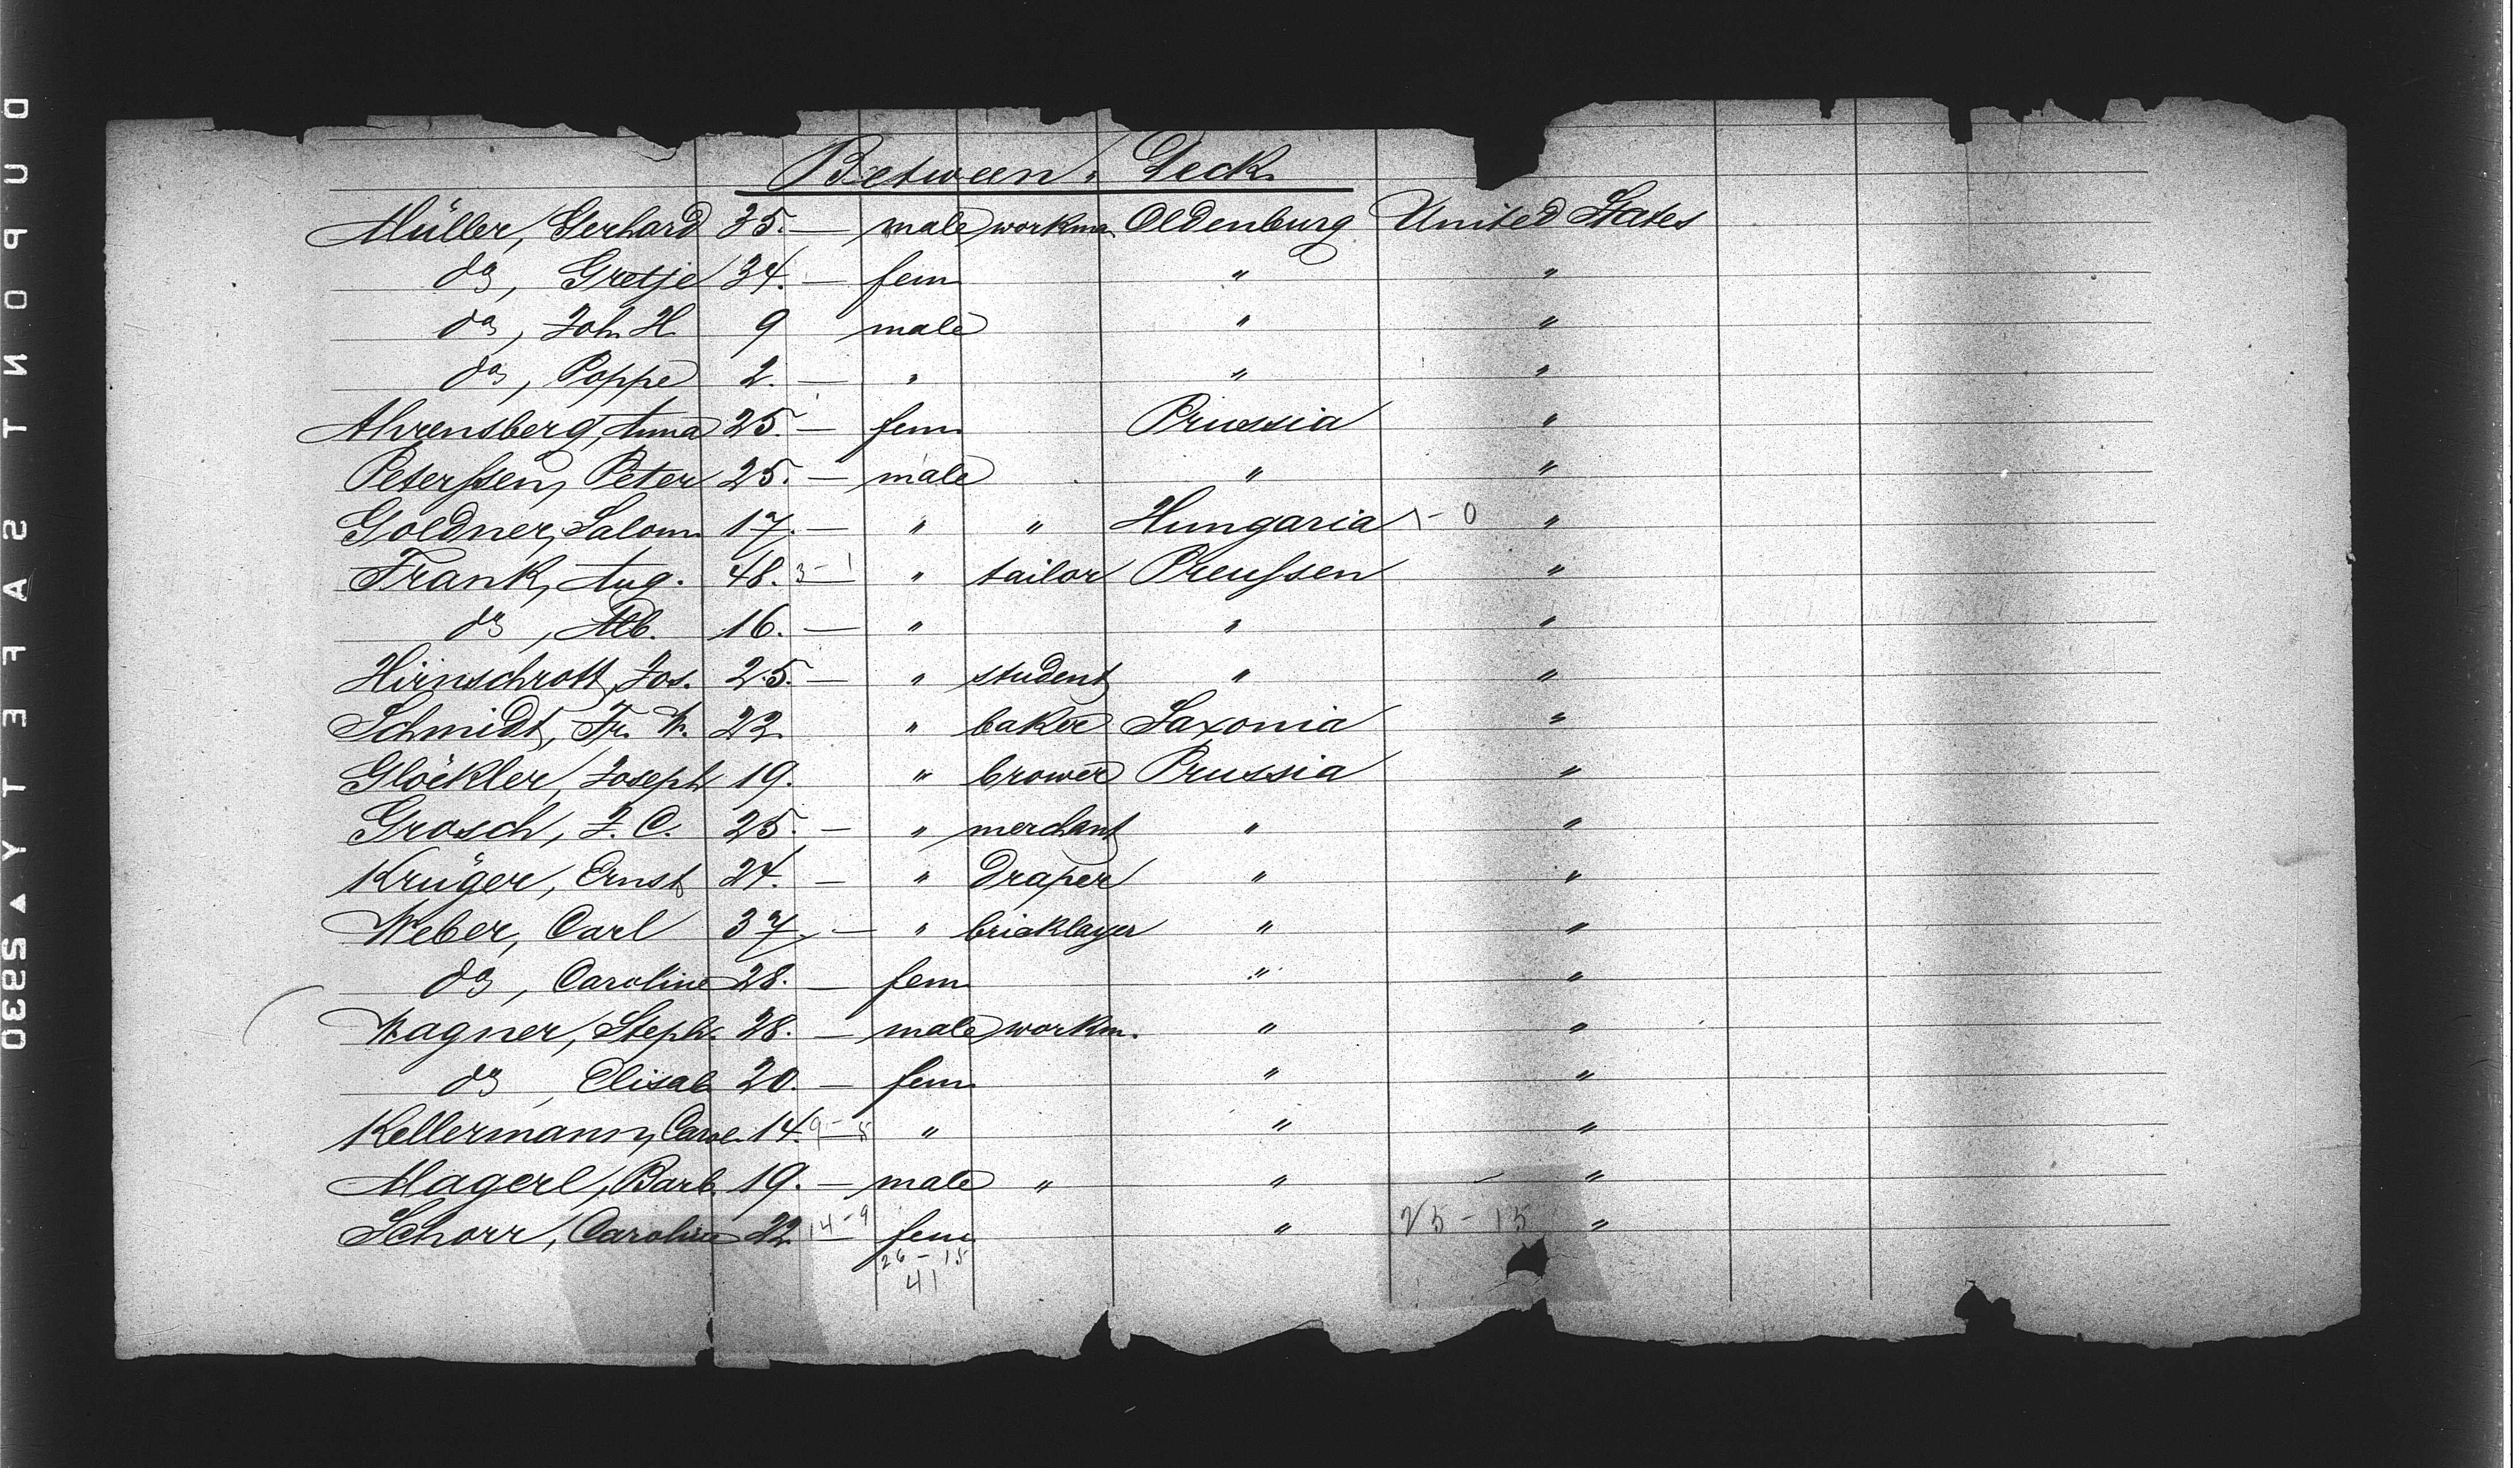 Between Deck.
Müller, Gerhard 35. — male workm. Oldenburg United States
do, Gretje 34. — fem " "
do, Joh. H. 9 male " "
do, Poppe 2. — " " "
Ahrensberg, Anna 25. — fem Prussia "
Peterssen, Peter 25. — male " "
Goldner, Salom. 17. — " " Hungaria - 0 "
Frank, Aug. 48. 3-1 " tailor Preussen "
do, Alb. 16. — " " "
Hirnschrott, Jos. 25. — " student " "
Schmidt, Fr. W. 22. " baker Saxonia "
Glöckler, Joseph 19. " brower Prussia "
Grosch, J. C. 25. — " merchant " "
Krüger, Ernst 24. — " Draper " "
Weber, Carl 37. — " bricklayer " "
do, Caroline 28. — fem " "
Wagner, Steph. 28. — male workm. " "
do, Elisab. 20. — fem " "
Kellermann, 14. 9-5 " " "
Magerl, Barb. 19. — male " " "
Schorr, Caroline 22 14-9 fem " 25-15 "
26-15
41
DUPONT SAFETY S2830